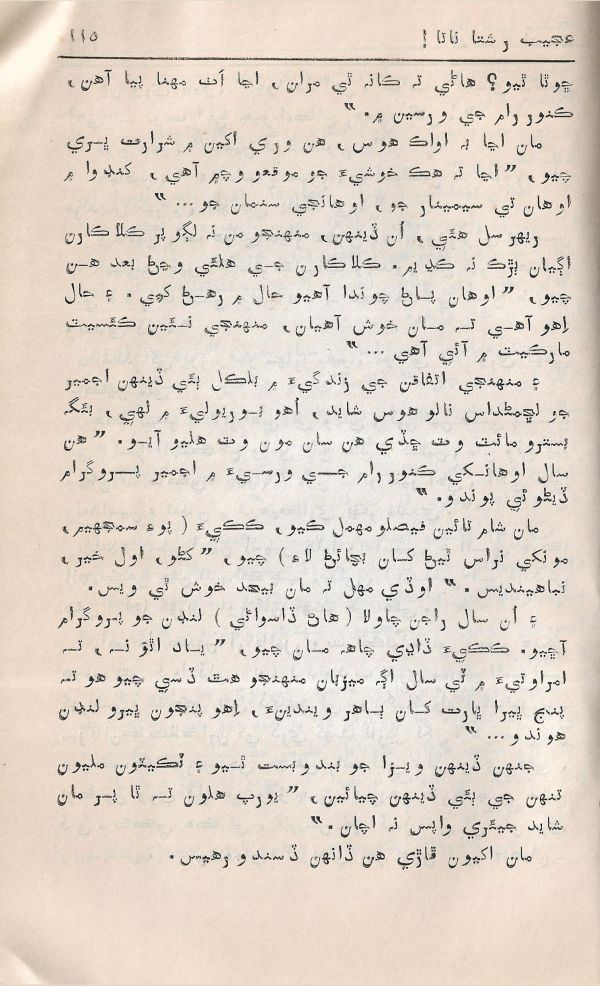 عجيب رشتا ناتا! ١١٥
ڇوٿا ٿيو؟ هاڻي ته ڪانه ٿي مران، اڃا اَٺ مهنا پيا آهن،
ڪنور رام جي ورسين ۾.“
مان اڃا به اواڪ هوس، هن وري اکين ۾ شرارت ڀري
چيو، ”اڃا ته هڪ خوشيءَ جو موقعو وچ ۾ آهي، کنڊوا ۾
اوهان تي سيمينار جو، اوهانجي سنمان جو...“
ريهرسل هئي، اُن ڏينهن، منهنجو من نه لڳو پر ڪلاڪارن
اڳيان بڙڪ نه ڪڍيم. ڪلاڪارن جي هلئي وڃڻ بعد هن
چيو، ”اوهان پاڻ چوندا آهيو حال ۾ رهڻ کپي. ۽ حال
اِهو آهي ته مان خوش آهيان، منهنجي نئين ڪئسيٽ
مارڪيٽ ۾ آئي آهي ...“
۽ منهنجي اتفاقن جي زندگيءَ ۾ بلڪل ٻئي ڏينهن اجمير
جو لڇمڻداس نالو هوس شايد، اُهو بوريوليءَ ۾ لهي، بئگ
بسترو مائٽ وٽ ڇڏي هن سان مون وٽ هليو آيو. ”هن
سال اوهانکي ڪنور رام جي ورسيءَ ۾ اجمير پروگرام
ڏيڻو ئي پوندو.“
مان شام تائين فيصلو مهمل ڪيو، ڪڪيءَ (پوءِ سمجهيم،
مونکي نراس ٿيڻ کان بچائڻ لاءِ) چيو، ”کڻو، اول خير،
نباهينديس.“ اوڏي مهل ته مان بيحد خوش ٿي ويس.
۽ اُن سال راجن چاولا (هاڻ ڏاسواڻي) لنڊن جو پروگرام
آڇيو. ڪڪيءَ ڏاڍي چاهه مان چيو، ”ياد اٿوَ نه، ته
امراوتيءَ ۾ ٽي سال اڳ ميزبان منهنجو هٿ ڏسي چيو هو ته
پنج ڀيرا ڀارت کان ٻاهر ويندينءَ، اِهو پنجون ڀيرو لنڊن
هوندو...“
جنهن ڏينهن ويزا جو بندوبست ٿيو ۽ ٽڪيٽون مليون
تنهن جي ٻئي ڏينهن چيائين، ”يورپ هلون ته ٿا پر مان
شايد جيئري واپس نه اچان.“
مان اکيون ڦاڙي هن ڏانهن ڏسندو رهيس.